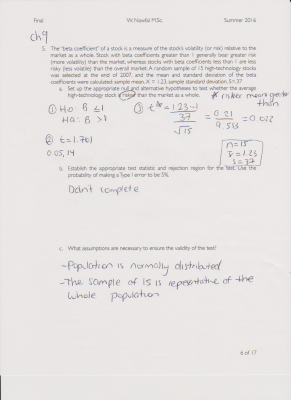 Final W. Nawful M.Sc. Summer 2016
ch9
5. The "beta coefficient" of a stock is a measure of the stock's volatility (or risk) relative to the
market as a whole. Stocks with beta coefficients greater than 1 generally bear greater risk
(more volatility) than the market, whereas stocks with beta coefficients less than 1 are less
risky (less volatile) than the overall market. A random sample of 15 high-technology stocks
was selected at the end of 2007, and the mean and standard deviation of the
beta coefficients were calculated: sample mean, X̄ = 1.23, sample standard deviation, S=.37
a. Set up the appropriate null and alternative hypotheses to test whether the average
high-technology stock is riskier than the market as a whole.
* riskier means greater
than
① Ho: B ≤ 1
Ha: B > 1
③ t* = 1.23-1 = 0.21 = 0.022
37 9.553
√15
② t = 1.761
0.05, 14
n = 15
x̄ = 1.23
s = 37
b. Establish the appropriate test statistic and rejection region for the test. Use the
probability of making a Type I error to be 5%.
Didn't complete
c. What assumptions are necessary to ensure the validity of the test?
-Population is normally distributed
-The sample of 15 is repesentative of the
whole population
6 of 17